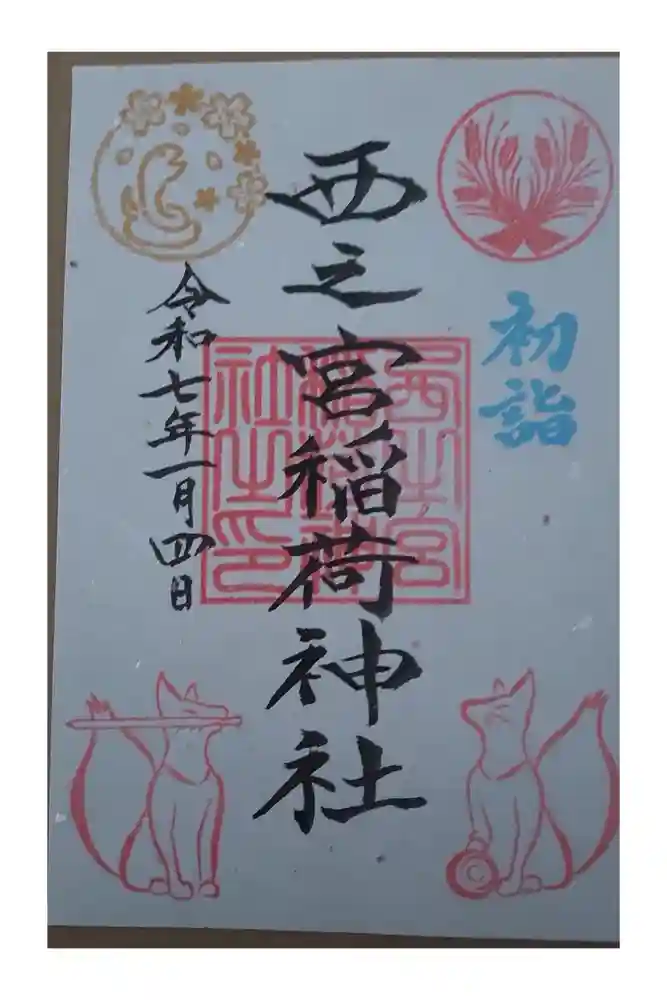 初詣
西之宮稲荷神社
西之宮稲荷神社之印
令和七年一月四日